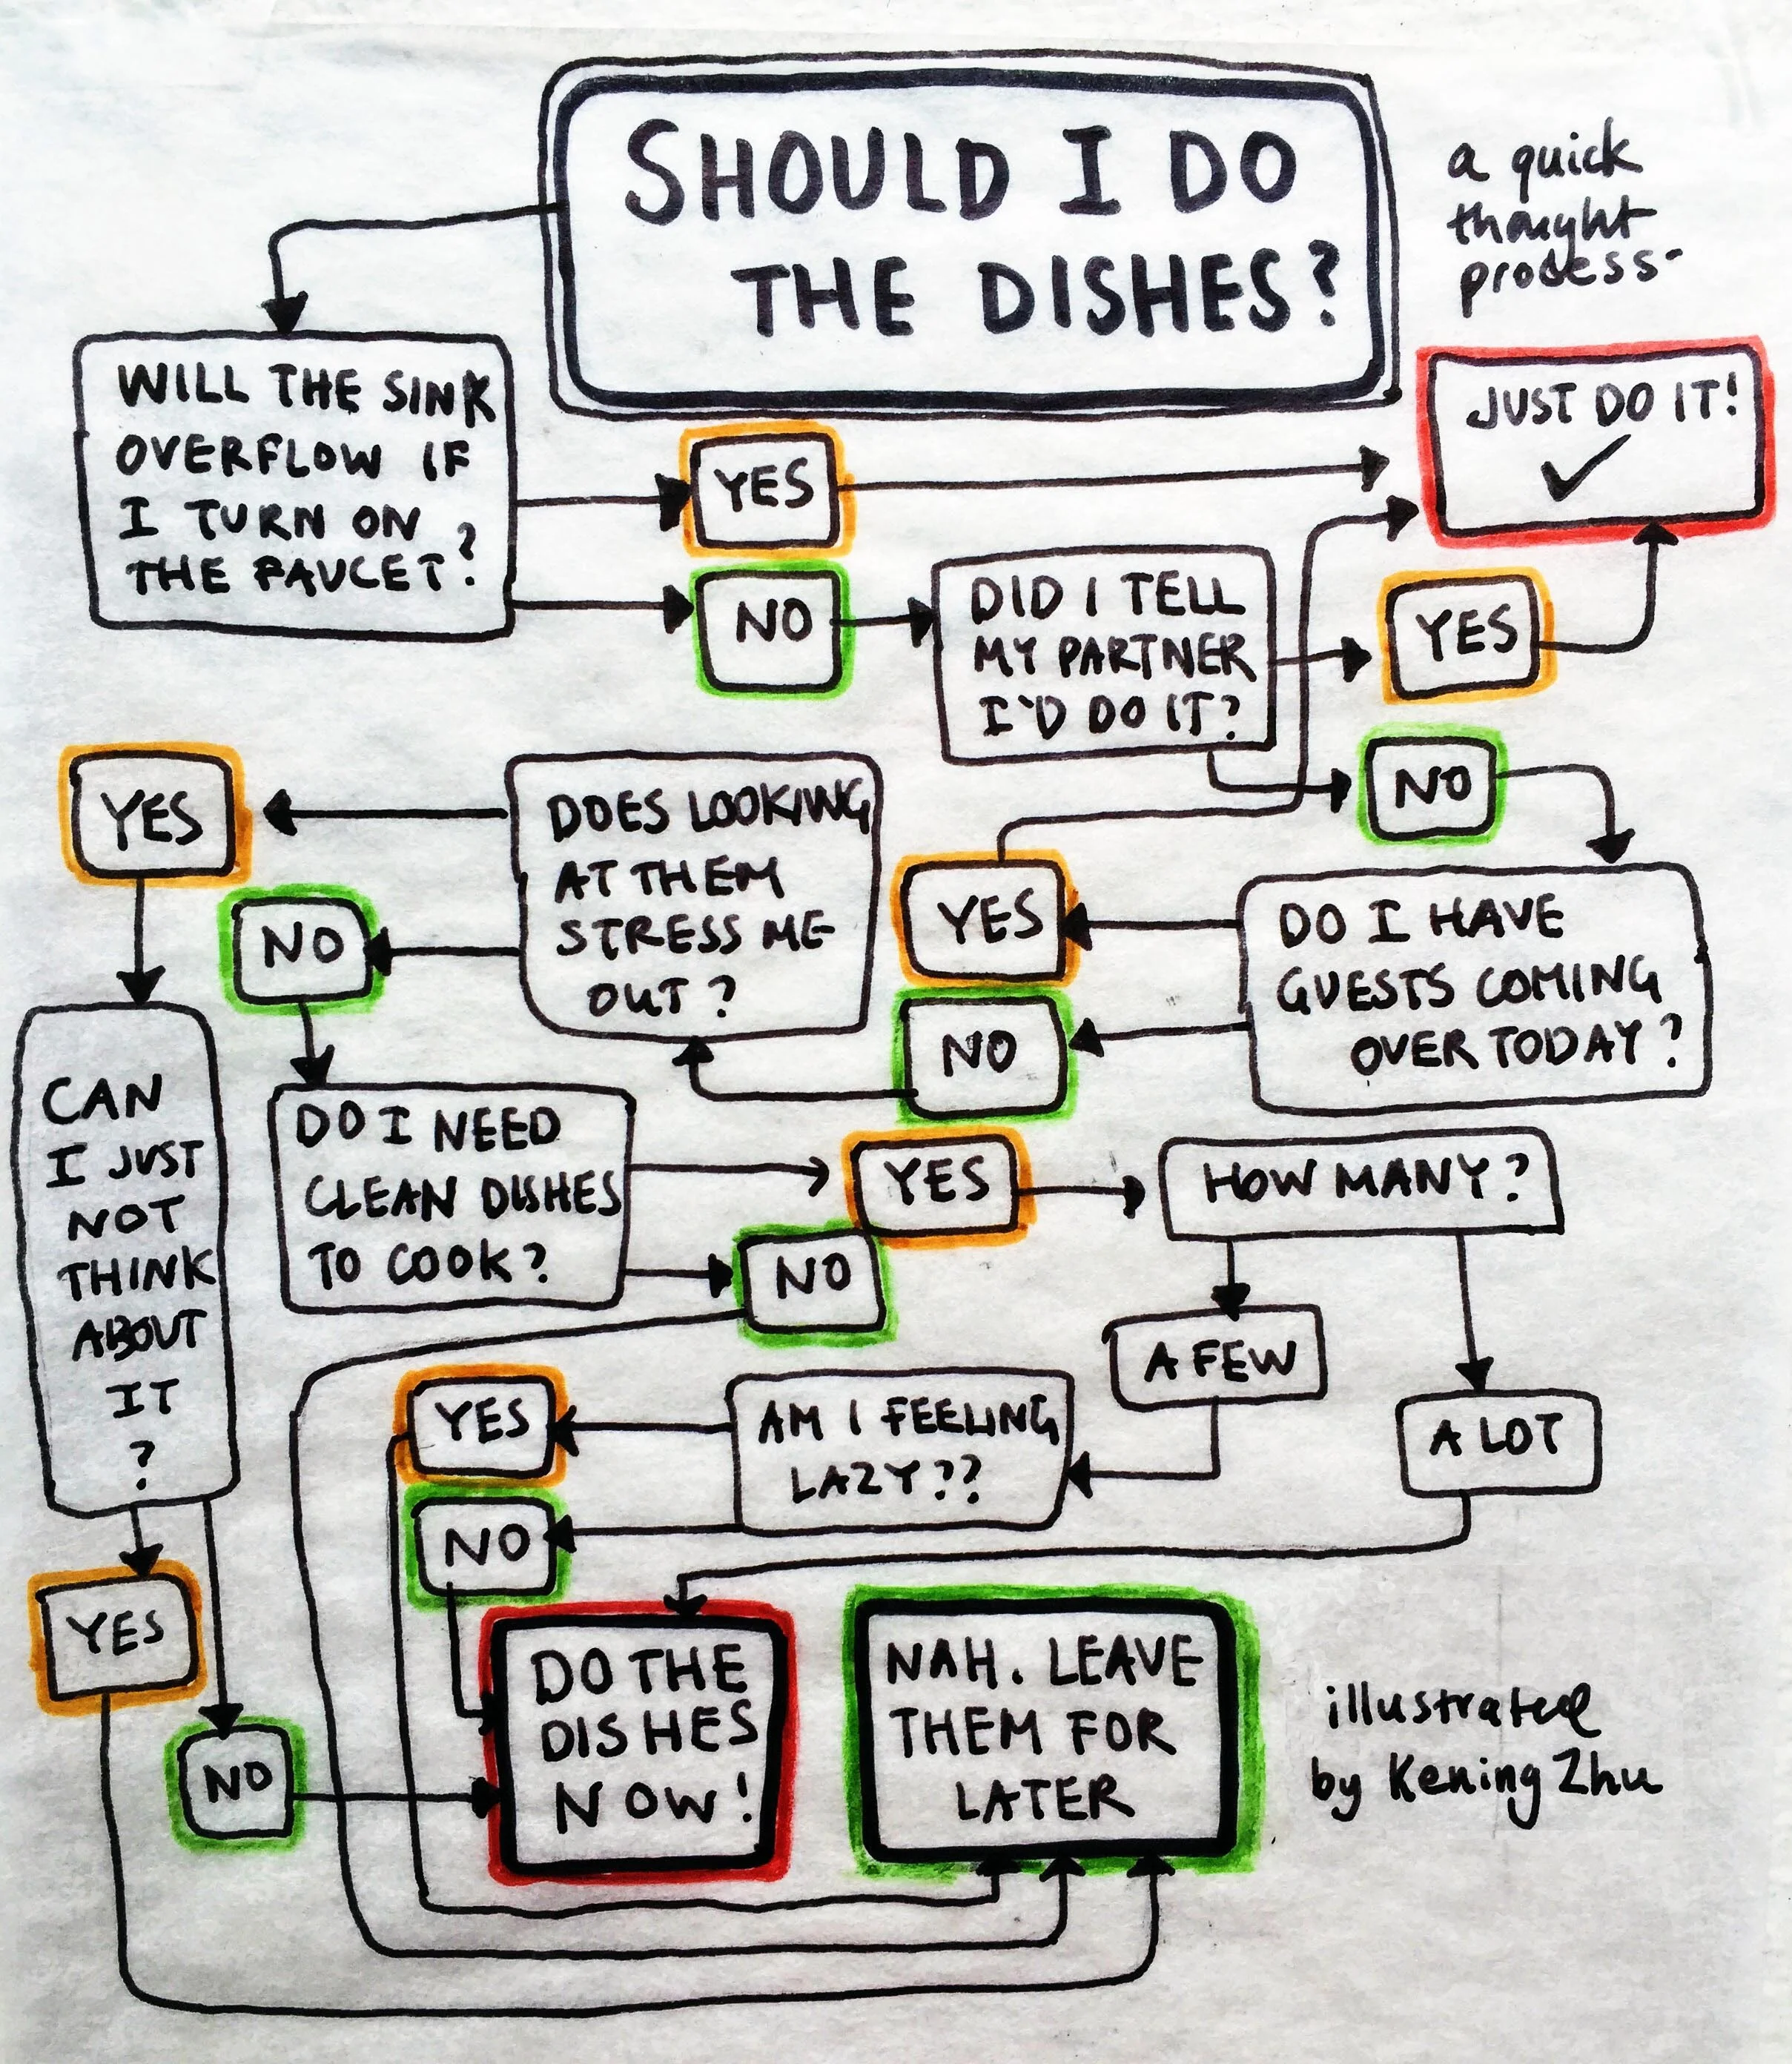 SHOULD I DO
THE DISHES?
a quick
thought
process
WILL THE SINK
OVERFLOW IF
I TURN ON
THE FAUCET?
YES
JUST DO IT!
NO
DID I TELL
MY PARTNER
I'D DO IT?
YES
NO
DO I HAVE
GUESTS COMING
OVER TODAY?
YES
NO
DOES LOOKING
AT THEM
STRESS ME
OUT?
YES
NO
CAN
I JUST
NOT
THINK
ABOUT
IT
?
DO I NEED
CLEAN DISHES
TO COOK?
YES
NO
HOW MANY?
A FEW
A LOT
AM I FEELING
LAZY??
YES
NO
YES
NO
DO THE
DISHES
NOW!
NAH. LEAVE
THEM FOR
LATER
illustrated
by Kening Zhu